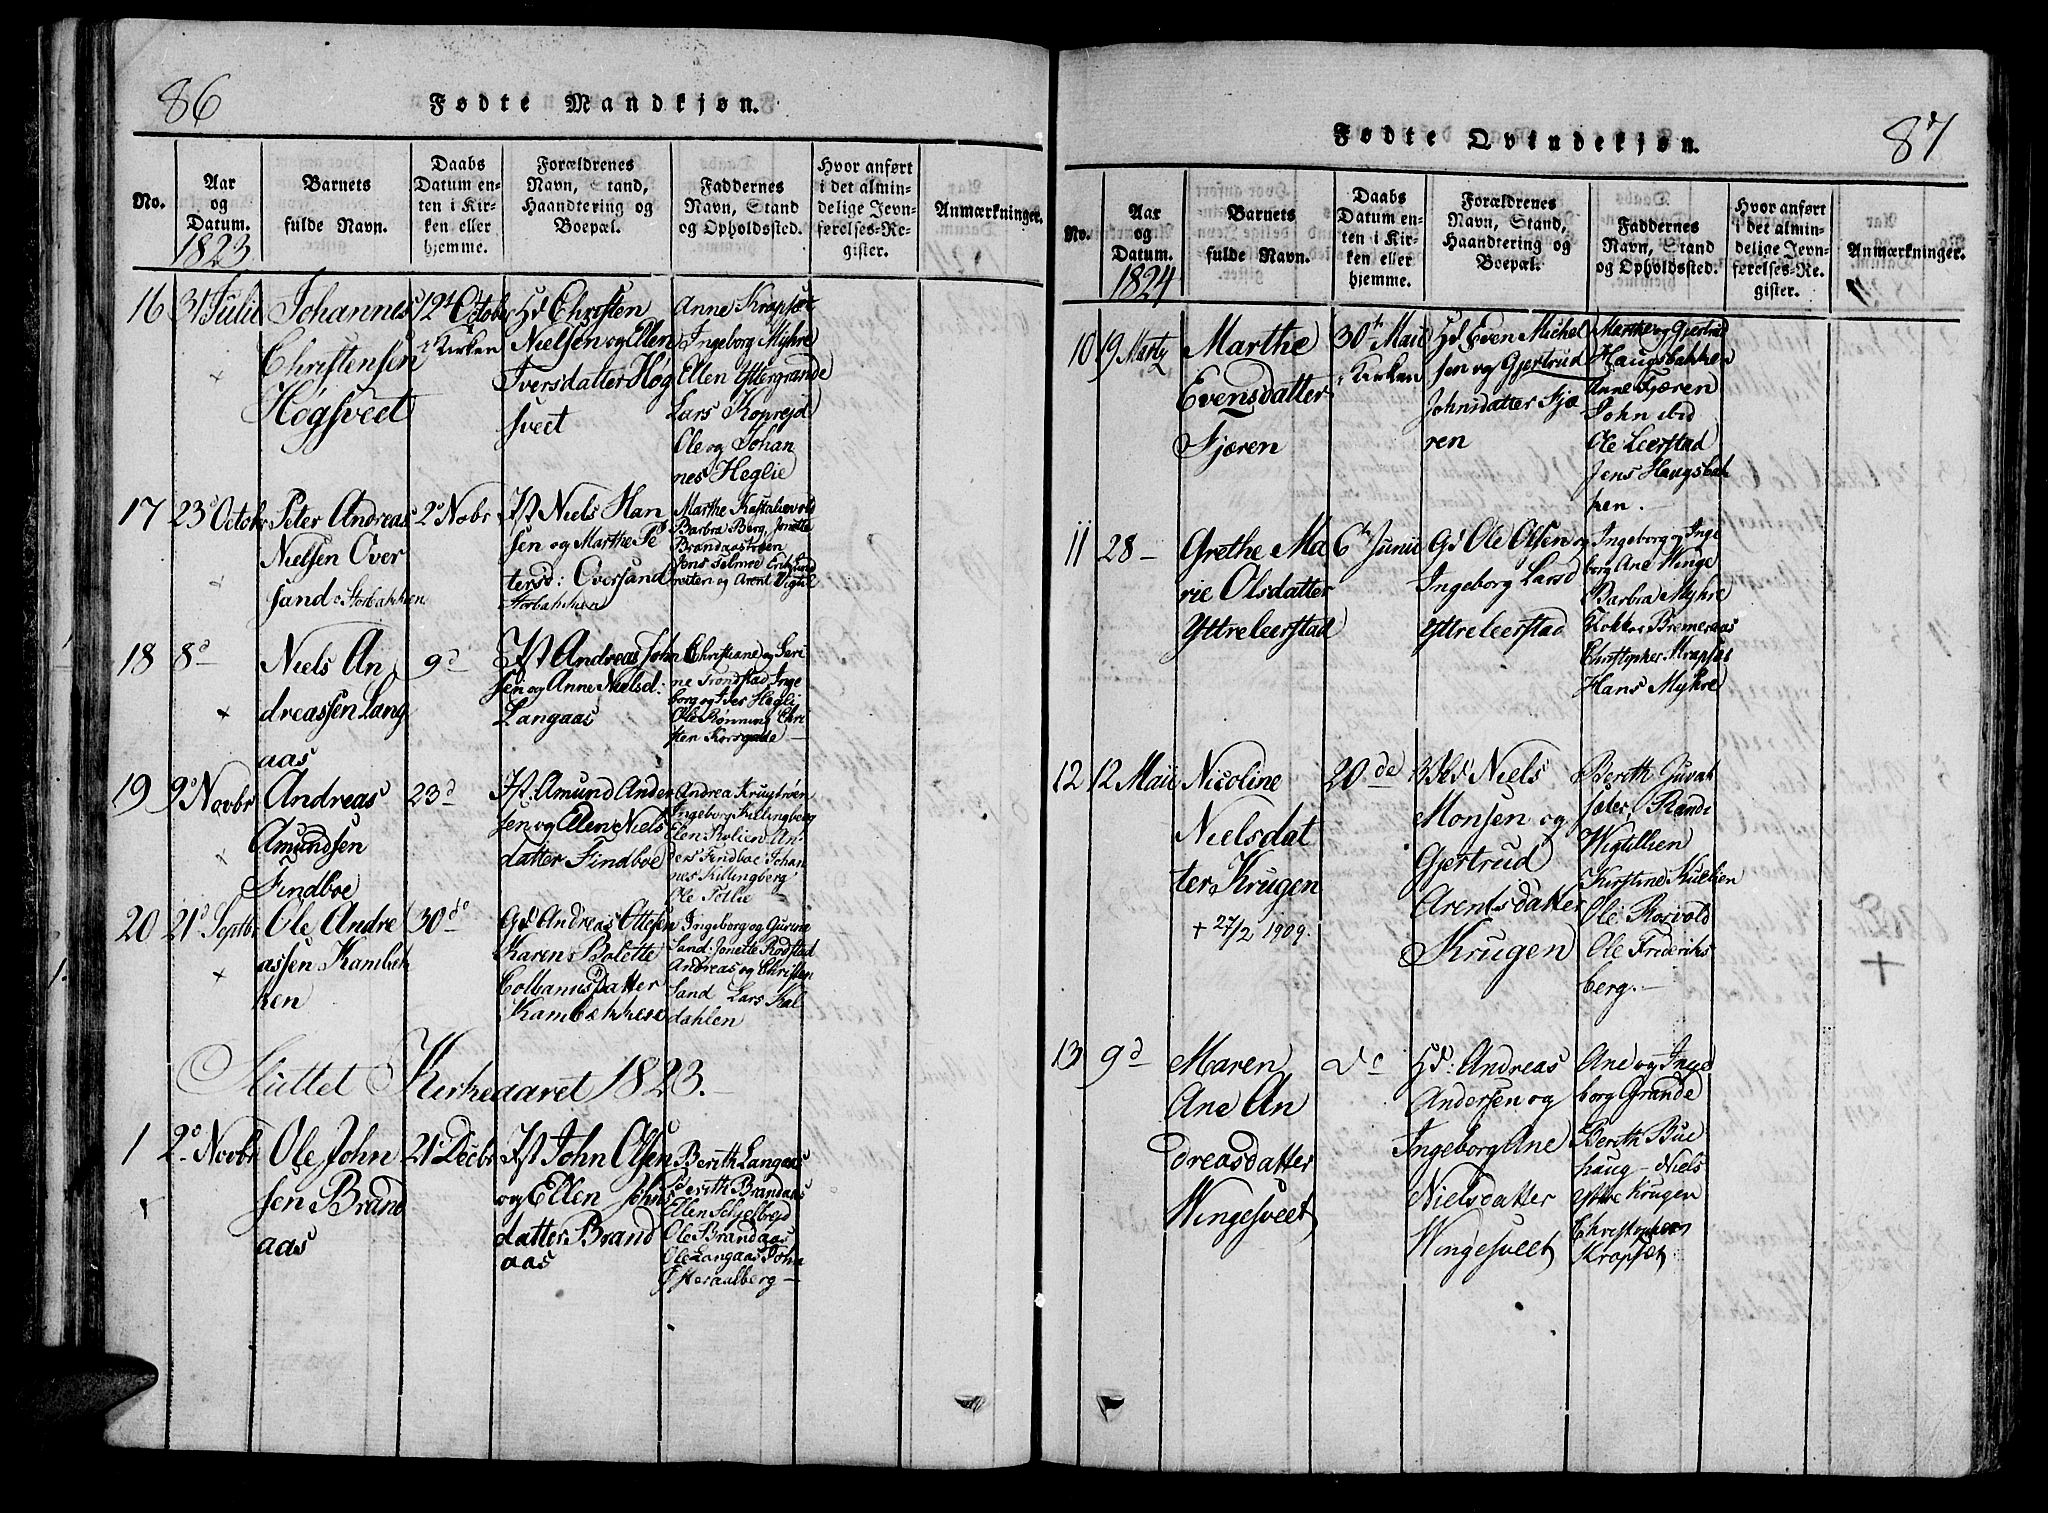 86
Fødte Mandkjøn.
No.
Aar
og
Datum.
1823
Barnets
fulde Navn.
Daabs
Datum en-
ten i Kir-
ken eller
hjemme.
Forældrenes
Navn, Stand,
Haandtering og
Boepæl.
Faddernes
Navn, Stand
og Opholdssted.
Hvor anført
i det almin-
delige Jevn-
førelses-Re-
gister.
Anmærkninger.
16
31 Julii
Johannes
Christensen
Høgsveet
12t Octobr
i Kirken
Hd Christen
Nielsen og Ellen
Iversdatter Høg
sveet
Anne Krapsæt
Ingeborg Myhre
Ellen Yttergrande
Lars Koprejd
Ole og Johan
nes Heglie
17
23d Octobr
Peter Andreas
Nielsen Over
sand Storbakken
2d Nobr
Niels Han
sen og Marthe Pe
tersd: Oversand
Storbakken
Marthe Kastalievold
Barbra Berg, Jonette
Brandaastrøen
reiten og Arent Vigtil
18
8d
Niels An
dreassen Lang
aas
9d
Andreas John
sen og Anne Nielsd:
Langaas
Christiane og Seri
ne Trondstad Inge
borg og Heglie
Ole Rønning Chri
sten Korsgade
19
9d Novbr
Andreas
Amundsen
Findboe
23d
Amund Ander
sen og Ellen Niels
datter Findboe
Andrea Krugtrøen
Ingeborg Killingberg
Elen An-
ders Findboe Johan
nes Killingberg
Ole Tollie
20
21d Septbr
Ole Andre
assen Kambek
ken
30de
Gd Andreas Ottesen
Karen Bolette
Colbanusdatter
Kambekken
Ingeborg og Gurine
Sand. Jonette Rodstad
Andreas og Christen
Sand Lars Kal
dahlen
Sluttet Kirkeaaret 1823.
1
2d Novbr
Ole John
sen Brand
aas
21d Decbr
John Olsen
og Ellen Johns
datter Brand
aas
Berith Langaas
Berith Brandaas
Ellen Schjelbrejd
Ole Brandaas
Ole Langaas John
Østeraalberg
87
Fødte Qvindekjøn.
No.
Aar
og
Datum.
1824
Barnets
fulde Navn.
Daabs
Datum en-
ten i Kir-
ken eller
hjemme.
Forældrenes
Navn, Stand,
Haandtering og
Boepæl.
Faddernes
Navn, Stand
og Opholdssted.
Hvor anført
i det almin-
delige Jevn-
førelses-Re-
gister.
Anmærkninger.
10
19 Marty
Marthe
Evensdatter
Fjæren
30th Maii
i Kirken
Hd Even Michel
sen og Gjertrud
Johnsdatter Fjæ
ren
Marthe og Gjertrud
Haugsbakken
Anne Fjæren
John ibid
Ole Leerstad
Jens Haugsbak
ken.
11
28
Grethe Ma
rie Olsdatter
Yttreleerstad
6th Junii
Gd Ole Olsen og
Ingeborg Larsd
Yttreleerstad
Ingeborg og Inge
borg Ane Winge
Barbra Myhre
Bremeraas
Christopher Krapsæt
Hans Myhre
12
12 Maii
Nicoline
Nielsdat
ter Krugen
+ 27/2 1909.
20de
Niels
Monsen og
Gjertrud
Arentsdatter
Krugen
Berith Juvat
sæter, Randi
Wigtillien
Kirstine
Ole Rosvold
Ole Frederiks
berg.
+
13
9d
Maren
Ane An
dreasdatter
Wingesveet
Hd: Andreas
Andersen og
Ingeborg Ane
Nielsdatter
Wingesveet
Ane og Inge
borg Grande
Berith Bue
haug - Niels
Krugen
Christopher
Krapset